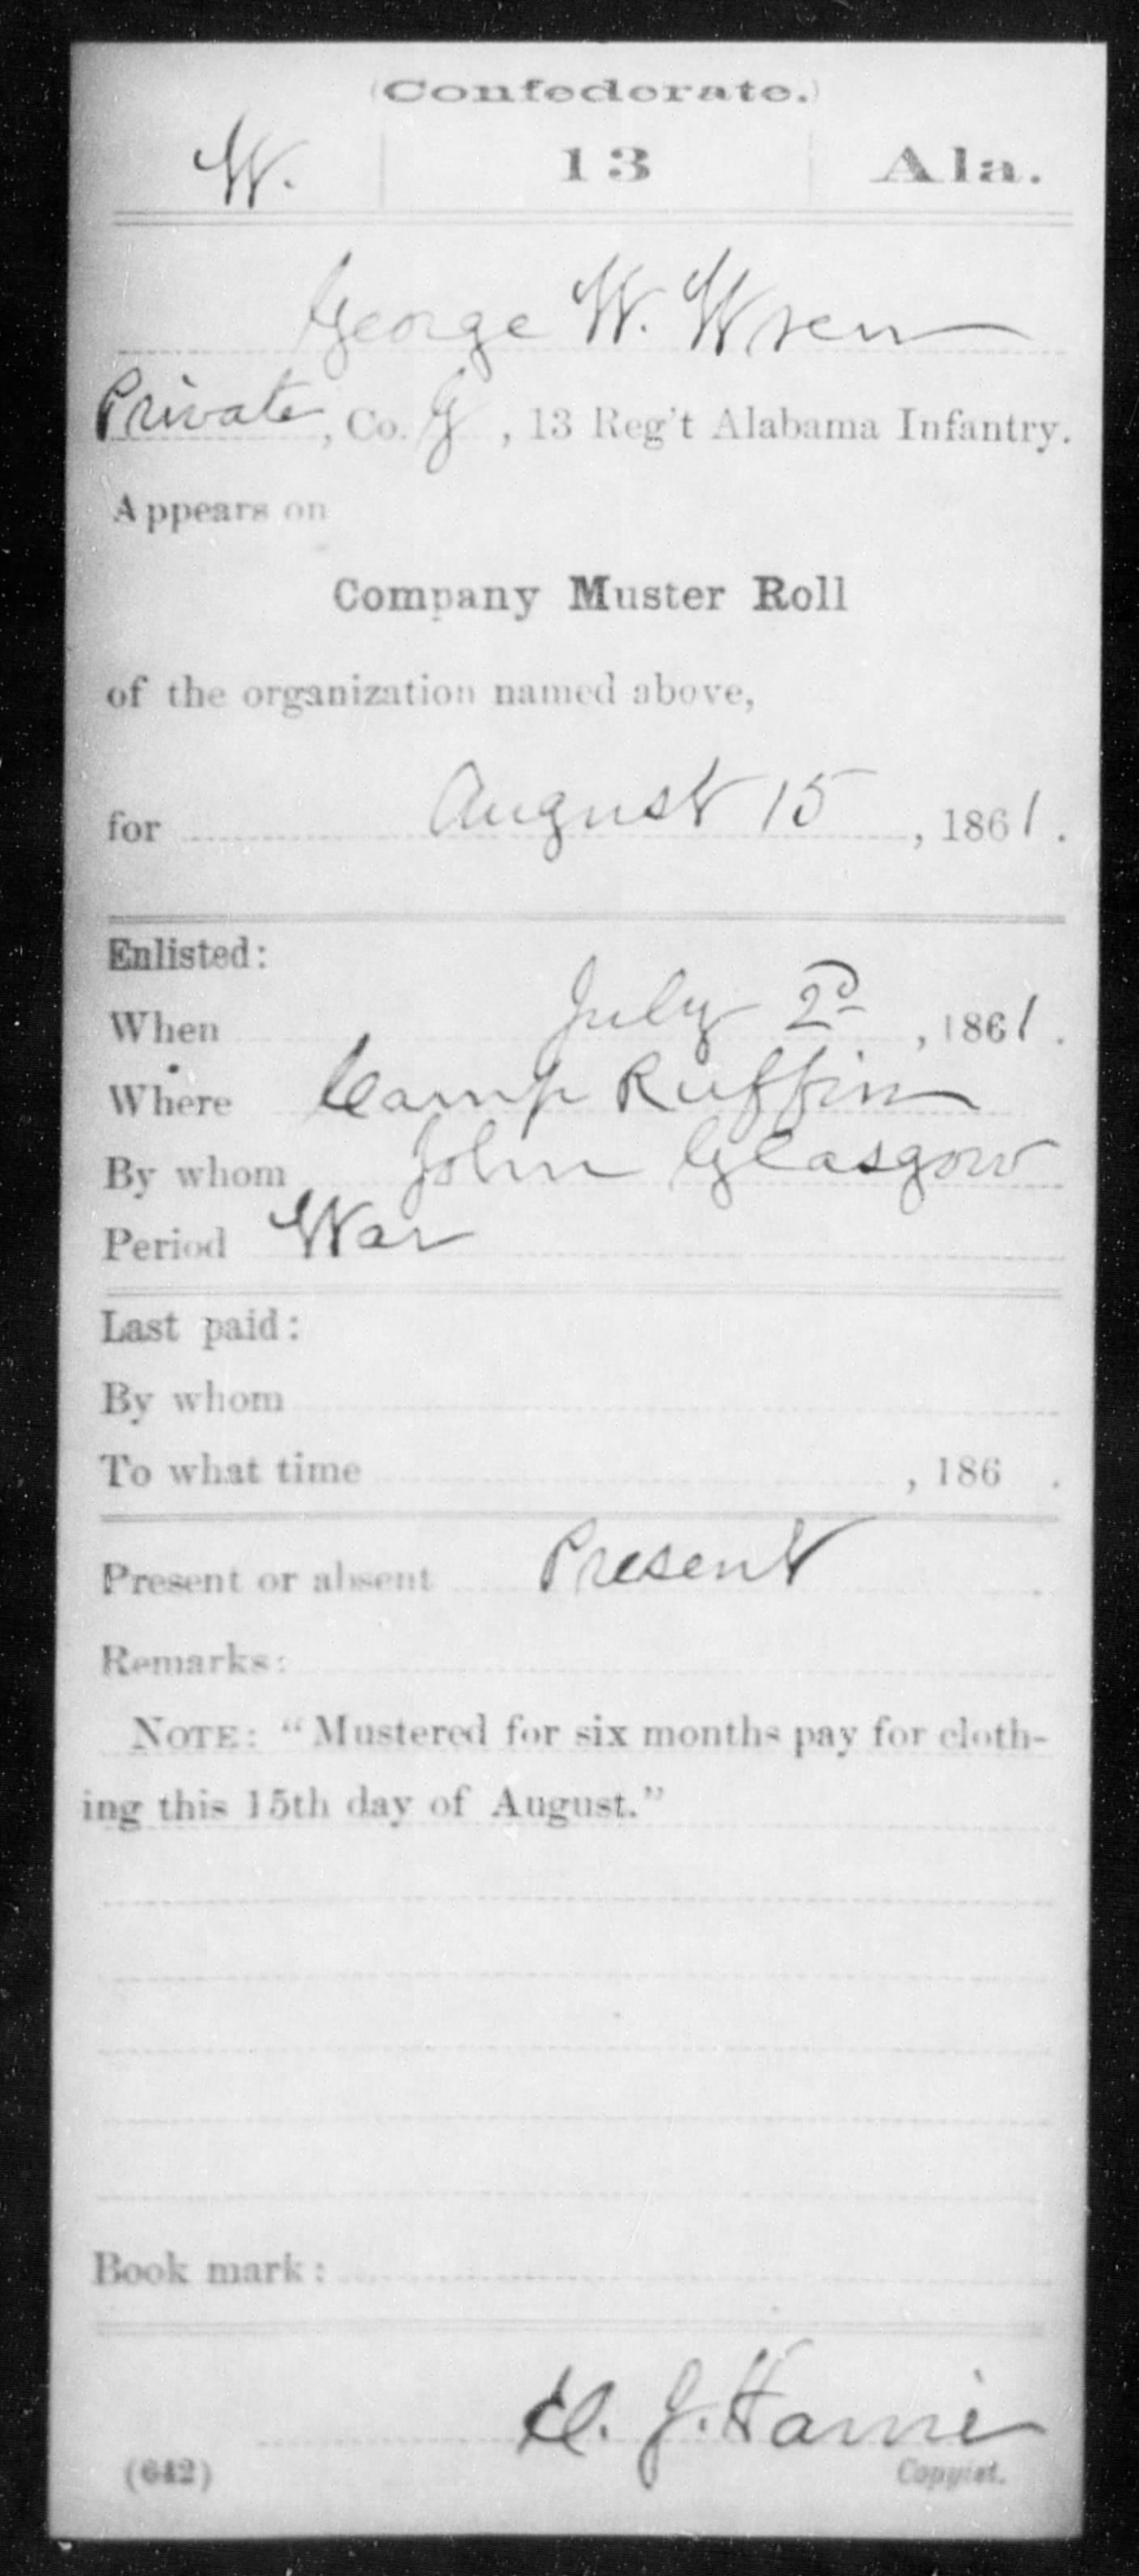 (Confederate.)
W. 13 Ala.
George W. Wren
Private, Co. G, 13 Reg't Alabama Infantry.
Appears on
Company Muster Roll
of the organization named above,
for August 15, 1861.
Enlisted:
When July 2d, 1861.
Where Camp Ruffin
By whom John Glasgow
Period War
Last paid:
By whom
To what time , 186 .
Present or absent Present
Remarks:
NOTE: “Mustered for six months pay for cloth-
ing this 15th day of August.”
Book mark:
J.
(642) Copyist.